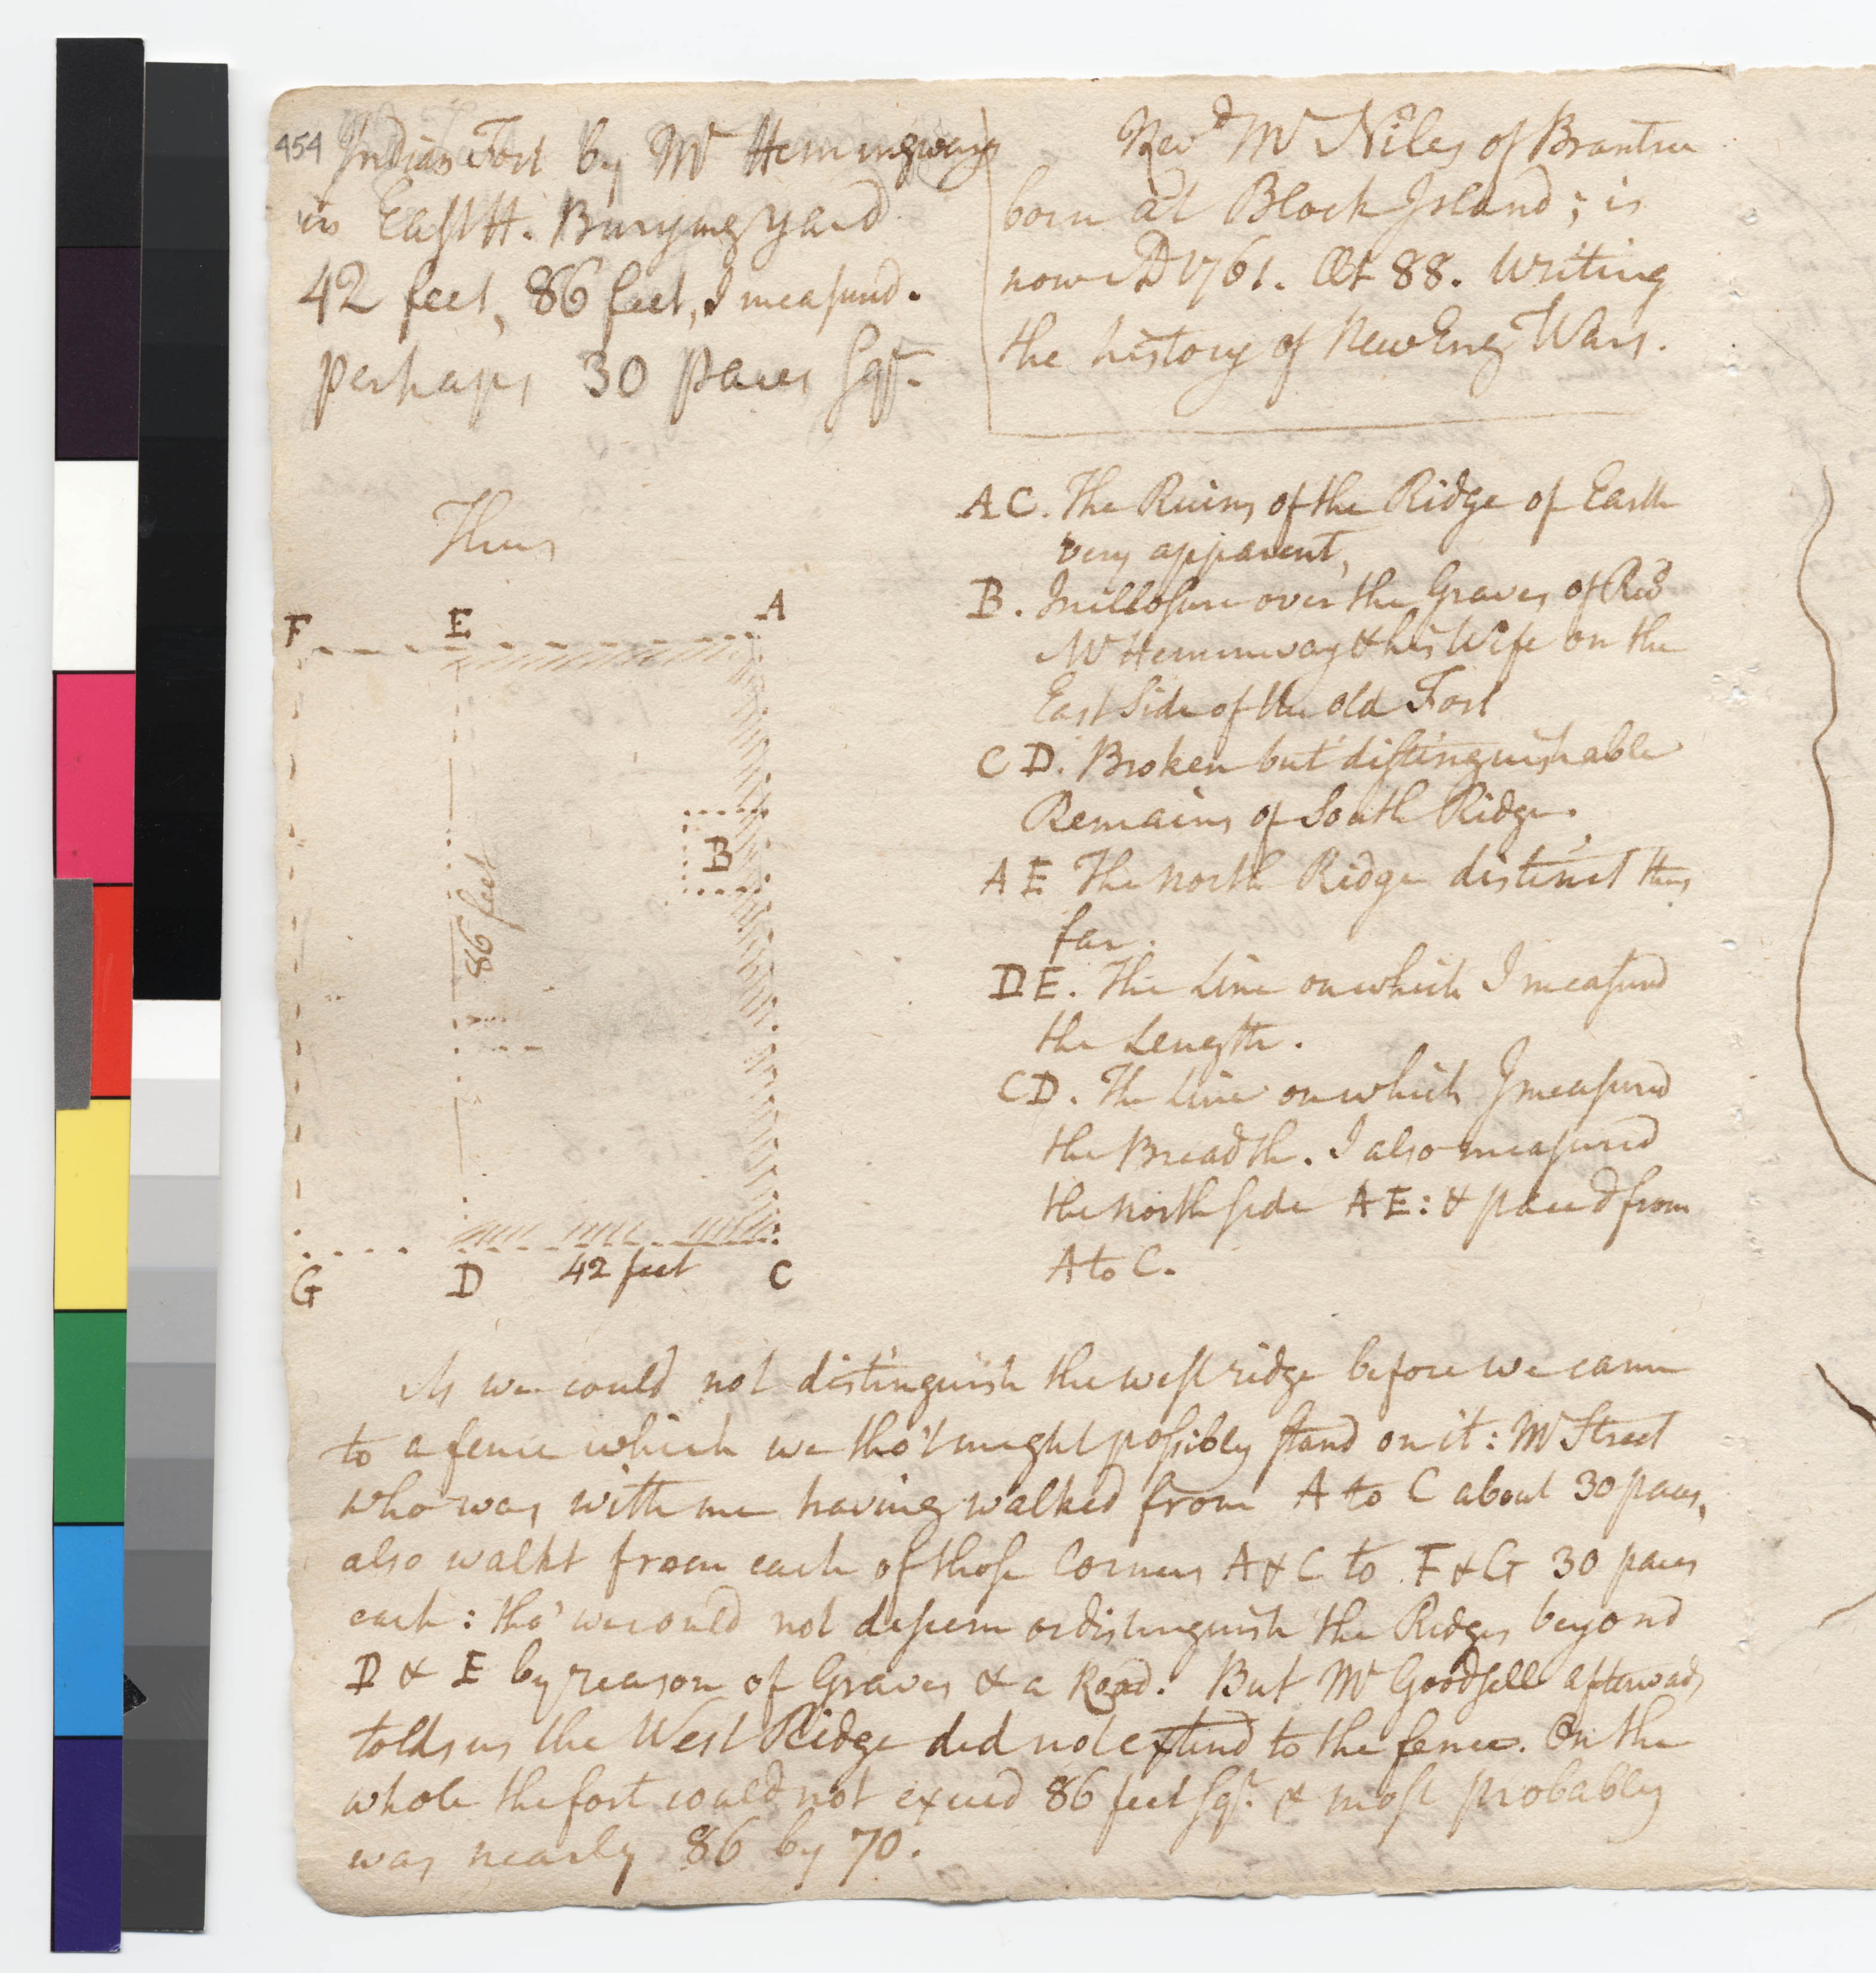 454 Indian Fort by Mr Hemingway
in East H. Burying Yard
42 feet, 86 feet, I measured.
perhaps 30 paces sqr.
Revd Mr Niles of Braintree
born at Block Island; is
now AD 1761. Æt 88. Writing
the history of New Eng Wars.
Thus
F E A
B
86 feet
G D 42 feet C
AC. The Ruins of the Ridge of Earth
very apparent,
B. Inclosure over the Graves of Revd
Mr Hemmway & his Wife on the
East Side of the old Fort
CD. Broken but distinguishable
Remains of South Ridge.
AE The North Ridge distinct thus
far.
DE. The Line on which I measured
the Length.
CD. The Line on which I measured
the Breadth. I also measured
the north side AE: & paced from
A to C.
As we could not distinguish the west ridge before we came
to a fence which we tho't might possibly stand on it: Mr Street
who was with me having walked from A to C about 30 paces,
also walkt from each of those Corners A & C to F & G 30 paces
each: tho' we could not discern or distinguish the Ridges beyond
D & E by reason of Graves & a Road. But Mr Goodsell afterwads
told us the West Ridge did not extend to the fence. On the
whole the fort could not exceed 86 feet sqr. & most probably
was nearly 86 by 70.